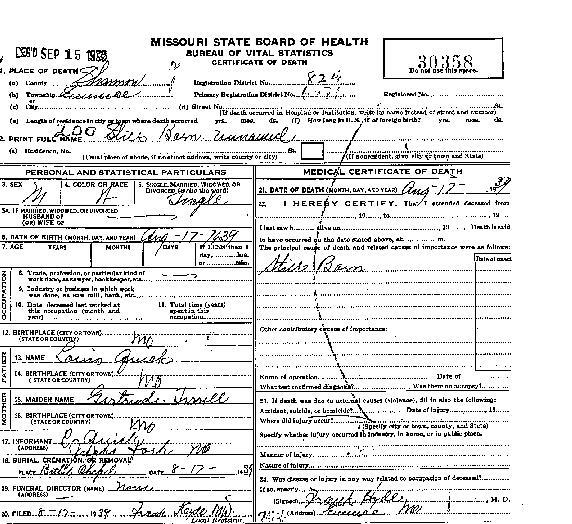 MISSOURI STATE BOARD OF HEALTH
BUREAU OF VITAL STATISTICS
CERTIFICATE OF DEATH
SEP 15
30358
Do not use this space.
1. PLACE OF DEATH
(a) County Shannon
Registration District No.
(b) Township
Primary Registration District No.
Registered No.
(c) City
(d) Street No.
St.
(If death occurred in Hospital or Institution, write its name instead of street and number)
(e) Length of residence in city or town where death occurred yrs. mos. ds. (f) How long in U.S., if of foreign birth? yrs. mos. ds.
2. PRINT FULL NAME Still Born unnamed
(a) Residence, No. St.
(Usual place of abode, if no street address, write county or city)
(If nonresident, give city or town and State)
PERSONAL AND STATISTICAL PARTICULARS
3. SEX M
4. COLOR OR RACE W
5. SINGLE, MARRIED, WIDOWED, OR DIVORCED (write the word) Single
5A. IF MARRIED, WIDOWED, OR DIVORCED
HUSBAND OF
(OR) WIFE OF
6. DATE OF BIRTH (MONTH, DAY, AND YEAR) Aug-17-1939
7. AGE YEARS MONTHS DAYS If LESS than 1 day, hrs. or min.
OCCUPATION
8. Trade, profession, or particular kind of work done, as sawyer, bookkeeper, etc.
9. Industry or business in which work was done, as saw mill, bank, etc.
10. Date deceased last worked at this occupation (month and year)
11. Total time (years) spent in this occupation
12. BIRTHPLACE (CITY OR TOWN)
(STATE OR COUNTRY) Mo
FATHER
13. NAME
14. BIRTHPLACE (CITY OR TOWN)
(STATE OR COUNTRY) Mo
MOTHER
15. MAIDEN NAME Gertrude
16. BIRTHPLACE (CITY OR TOWN)
(STATE OR COUNTRY) Mo
17. INFORMANT
(ADDRESS) Mo
18. BURIAL, CREMATION, OR REMOVAL
PLACE Chapel DATE 8-17- 1939
19. FUNERAL DIRECTOR (NAME) None
(ADDRESS)
20. FILED 8-17- 1939 Frank Hyde MD
Local Registrar.
MEDICAL CERTIFICATE OF DEATH
21. DATE OF DEATH (MONTH, DAY, AND YEAR) Aug-17- 1939
22. I HEREBY CERTIFY, That I attended deceased from
19 , to 19
I last saw h alive on 19 Death is said
to have occurred on the date stated above, at m.
The principal cause of death and related causes of importance were as follows:
Date of onset
Still Born
Other contributory causes of importance:
Name of operation Date of
What test confirmed diagnosis? Was there an autopsy?
23. If death was due to external causes (violence), fill in also the following:
Accident, suicide, or homicide? Date of injury 19
Where did injury occur?
(Specify city or town, county, and State)
Specify whether injury occurred in industry, in home, or in public place.
Manner of injury
Nature of injury
24. Was disease or injury in any way related to occupation of deceased?
If so, specify
(Signed) Frank Hyde, M. D.
(Address) Mo